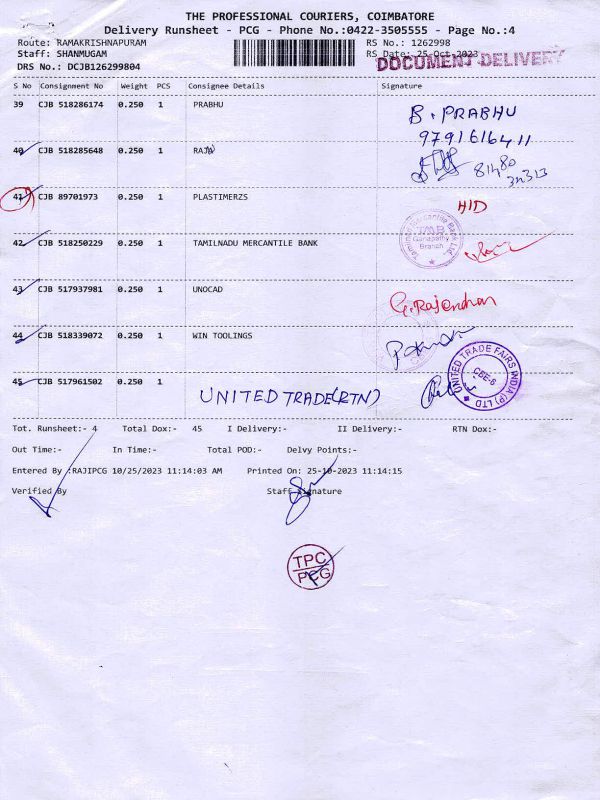 THE PROFESSIONAL COURIERS, COIMBATORE
Delivery Runsheet - PCG - Phone No.:0422-3505555 - Page No.:4
Route: RAMAKRISHNAPURAM RS No.: 1262998
Staff: SHANMUGAM RS Date: 25-Oct-2023
DOCUMENT DELIVERY
DRS No.: DCJB126299804
S No Consignment No Weight PCS Consignee Details Signature
39 CJB 518286174 0.250 1 PRABHU
B. PRABHU
9791616411
40 CJB 518285648 0.250 1 RAJA
81480
34313
41 CJB 89701973 0.250 1 PLASTIMERZS
HID
Tamilnad Mercantile Bank Ltd.
TMB
Ganapathy
Branch
42 CJB 518250229 0.250 1 TAMILNADU MERCANTILE BANK
43 CJB 517937981 0.250 1 UNOCAD
G. Rajendran
44 CJB 518339072 0.250 1 WIN TOOLINGS
UNITED TRADE FAIRS INDIA (P) LTD
CBE-6
45 CJB 517961502 0.250 1
UNITED TRADE (RTN)
Tot. Runsheet:- 4 Total Dox:- 45 I Delivery:- II Delivery:- RTN Dox:-
Out Time:- In Time:- Total POD:- Delvy Points:-
Entered By :RAJIPCG 10/25/2023 11:14:03 AM Printed On: 25-10-2023 11:14:15
Verified By Staff Signature
TPC
PCG